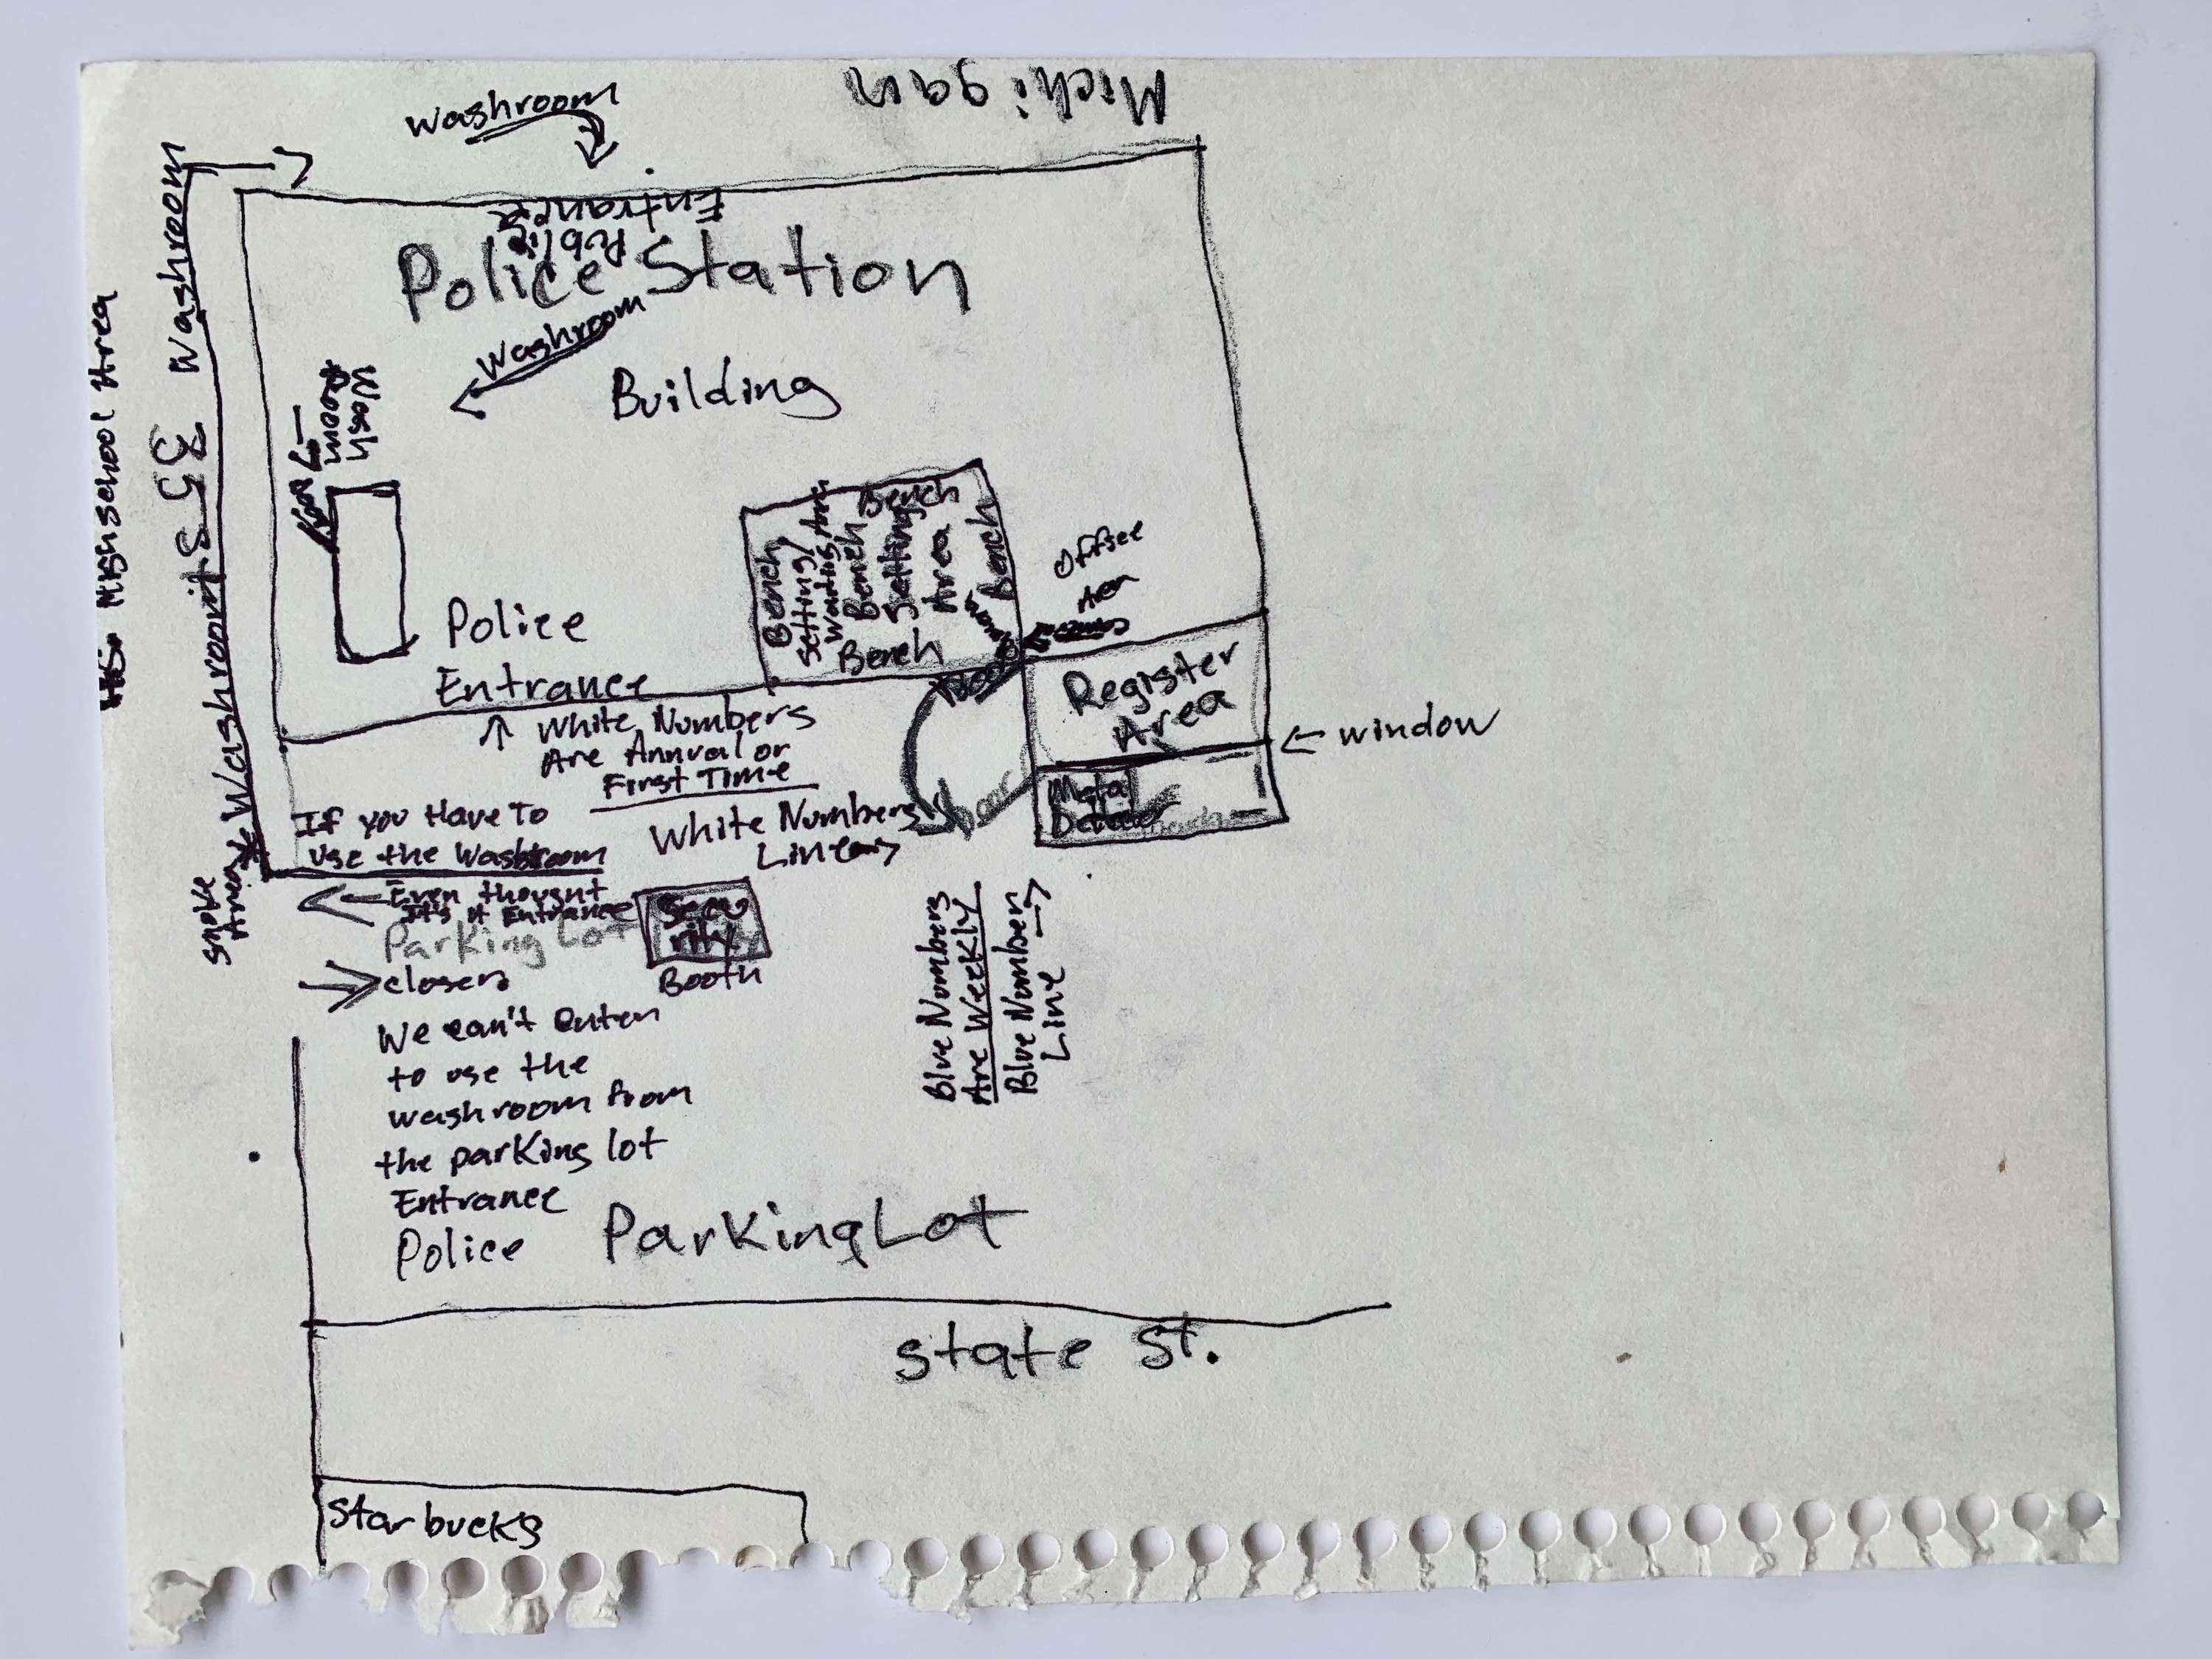 Michigan
Washroom
Public
Entrance
Police Station
Washroom
Building
Wash
Room
Washroom
35 St
Washroom
High school Area
Smoke
Area
Police
Entrance
Bench
Setting/
Waiting Area
Bench
Bench
Setting
Area
Bench
Bench
Office
Area
Register
Area
← window
Metal
↑ White Numbers
Are Annval or
First Time
White Numbers
Line →
If you Have To
use the Washroom
← Even thought
It's A Entrance
Parking Lot
→ closer
Secu
rity
Booth
We can't enter
to use the
washroom from
the parking lot
Entrance
Police Parking Lot
Blue Numbers
Are Weekly
Blue Number →
Line
State St.
Starbucks